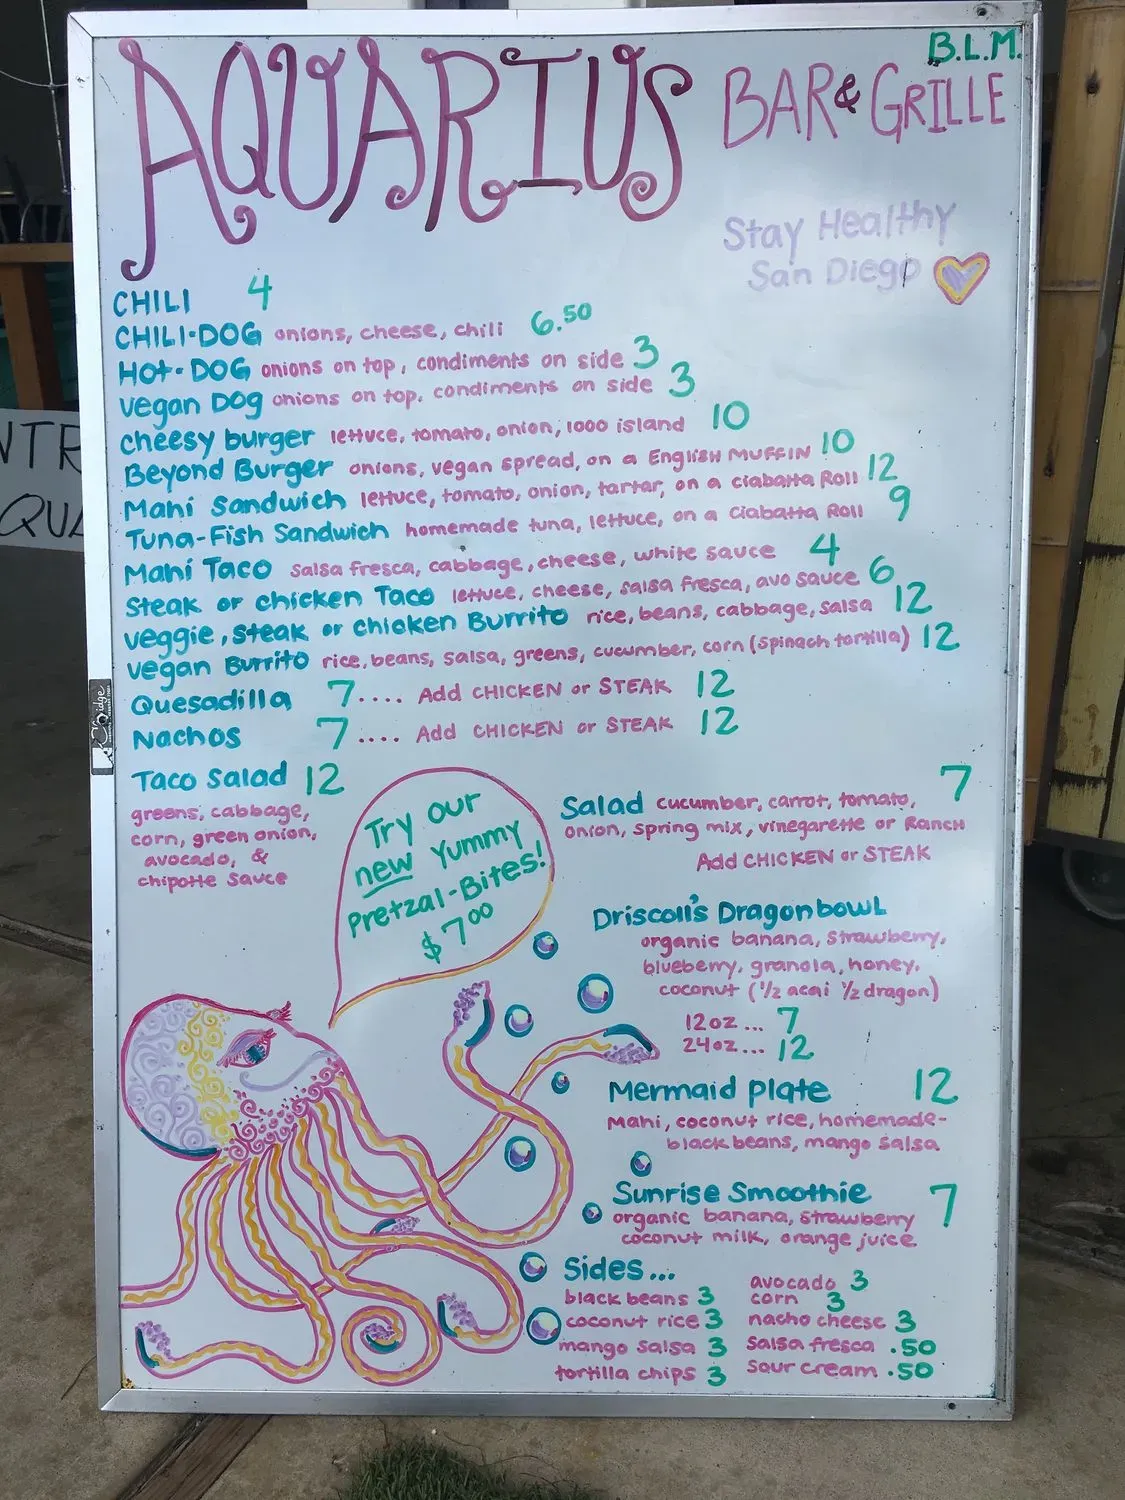 B.L.M.
AQUARIUS BAR & GRILLE
Stay Healthy
San Diego
CHILI 4
CHILI-DOG onions, cheese, chili 6.50
HOT-DOG onions on top, condiments on side 3
Vegan Dog onions on top, condiments on side 3
cheesy burger lettuce, tomato, onion, 1000 island 10
Beyond Burger onions, vegan spread, on a ENGLISH MUFFIN 10
Mahi Sandwich lettuce, tomato, onion, tartar, on a ciabatta Roll 12
Tuna-Fish Sandwich homemade tuna, lettuce, on a ciabatta Roll 9
Mahi Taco salsa fresca, cabbage, cheese, white sauce 4
Steak or chicken Taco lettuce, cheese, salsa fresca, avo sauce 6
veggie, steak or chicken Burrito rice, beans, cabbage, salsa 12
vegan Burrito rice, beans, salsa, greens, cucumber, corn (spinach tortilla) 12
Quesadilla 7.... Add CHICKEN or STEAK 12
Nachos 7.... Add CHICKEN or STEAK 12
Taco Salad 12
greens, cabbage,
corn, green onion,
avocado, &
chipotte sauce
Try our
new Yummy
Pretzal-Bites!
$7.00
Salad cucumber, carrot, tomato, 7
onion, spring mix, vinegarette or RANCH
Add CHICKEN or STEAK
Driscoll's Dragonbowl
organic banana, strawberry,
blueberry, granola, honey,
coconut (1/2 acai 1/2 dragon)
12oz... 7
24oz... 12
Mermaid plate 12
Mahi, coconut rice, homemade-
black beans, mango salsa
Sunrise Smoothie 7
organic banana, strawberry
coconut milk, orange juice
Sides...
black beans 3
coconut rice 3
mango salsa 3
tortilla chips 3
avocado 3
corn 3
nacho cheese 3
salsa fresca .50
sour cream .50
NTR
QUA